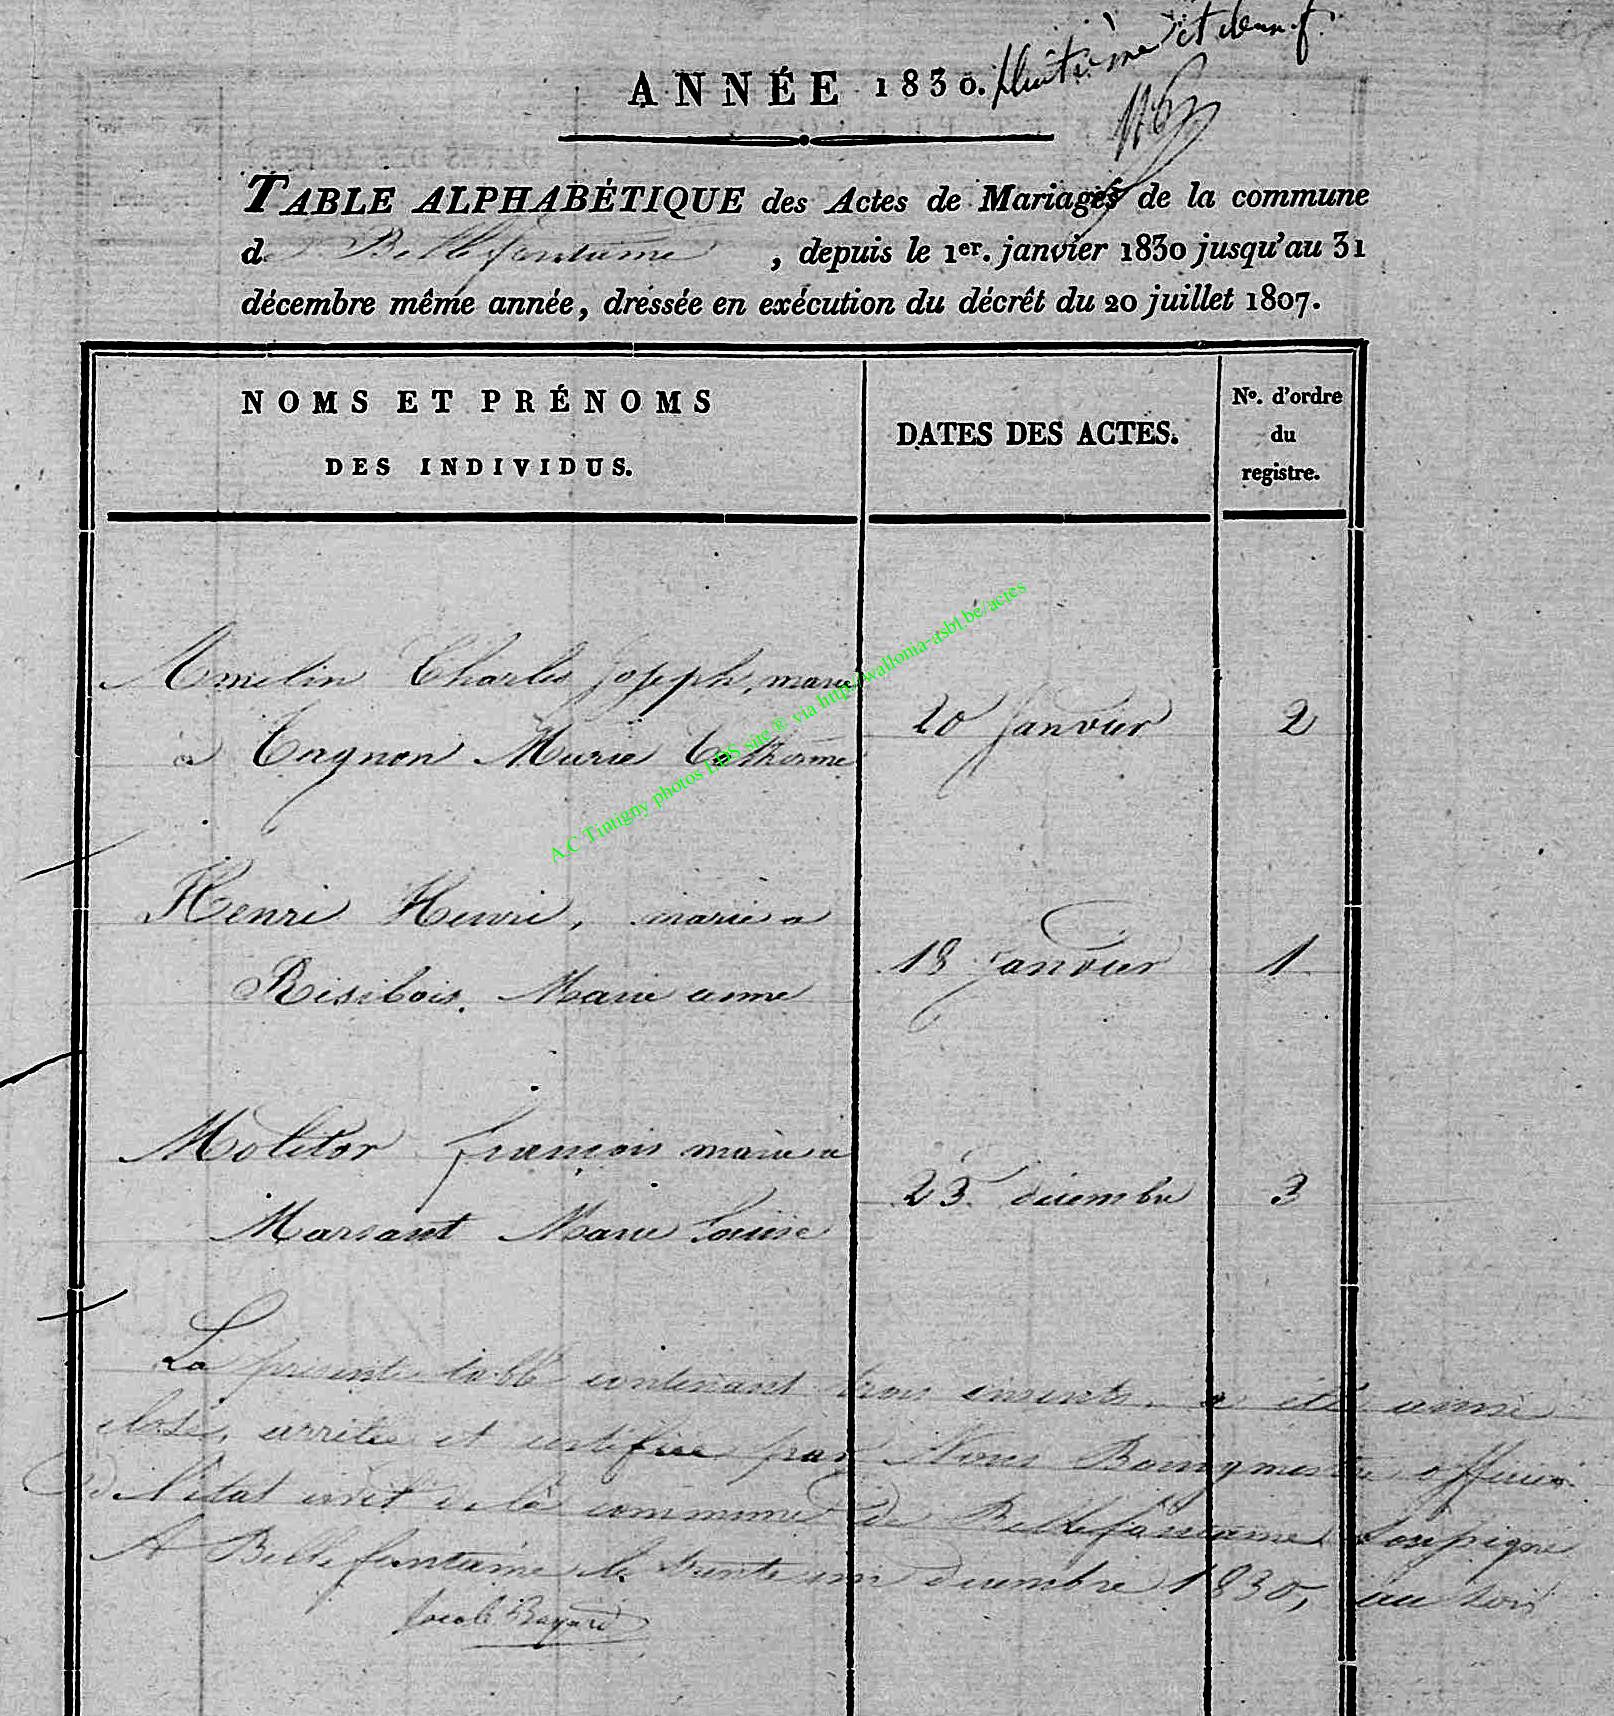 huitième et dernf.
ANNÉE 1830.
TABLE ALPHABÉTIQUE des Actes de Mariages de la commune
de Bellefontaine, depuis le 1er. janvier 1830 jusqu'au 31
décembre même année, dressée en exécution du décrêt du 20 juillet 1807.
NOMS ET PRÉNOMS
DES INDIVIDUS.
DATES DES ACTES.
No. d'ordre
du
registre.
Amelin Charles joseph, marié
à Tagnon Marie Catherine
20 Janvier
2
Henri Henri, marié a
Risibois. Marie anne
18 Janvier
1
Molitor françois marié a
Marsant Marie Louise
23 décembre
3
La présente table contenant trois a été ainsi
close, arrêtée et certifiée par Nous Bourgmestre officier
de l'état civil de la commune de Bellefontaine Soussigné
A Bellefontaine le trente un décembre 1830, au soir
Jacob Bayard
A.C Tintigny photos LDS site ® via http://wallonia-asbl.be/actes